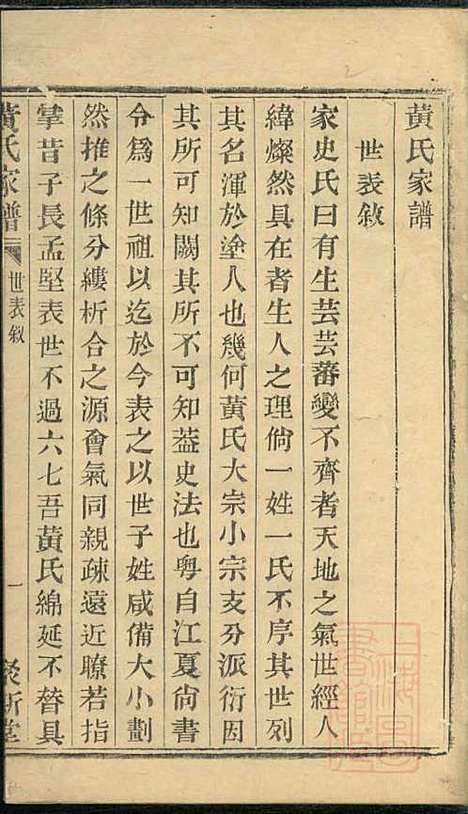 黃氏家譜
世表敘
家史氏曰有生芸芸蕃變不齊者天地之氣世經人
緯燦然具在者生人之理倘一姓一氏不序其世列
其名渾於塗人也幾何黃氏大宗小宗支分派衍因
其所可知闕其所不可知葢史法也粵自江夏尙書
令爲一世祖以迄於今表之以世子姓咸備大小劃
然推之條分縷析合之源會氣同親疎遠近瞭若指
掌昔子長孟堅表世不過六七吾黃氏綿延不替具
黃氏家譜
世表敘
一